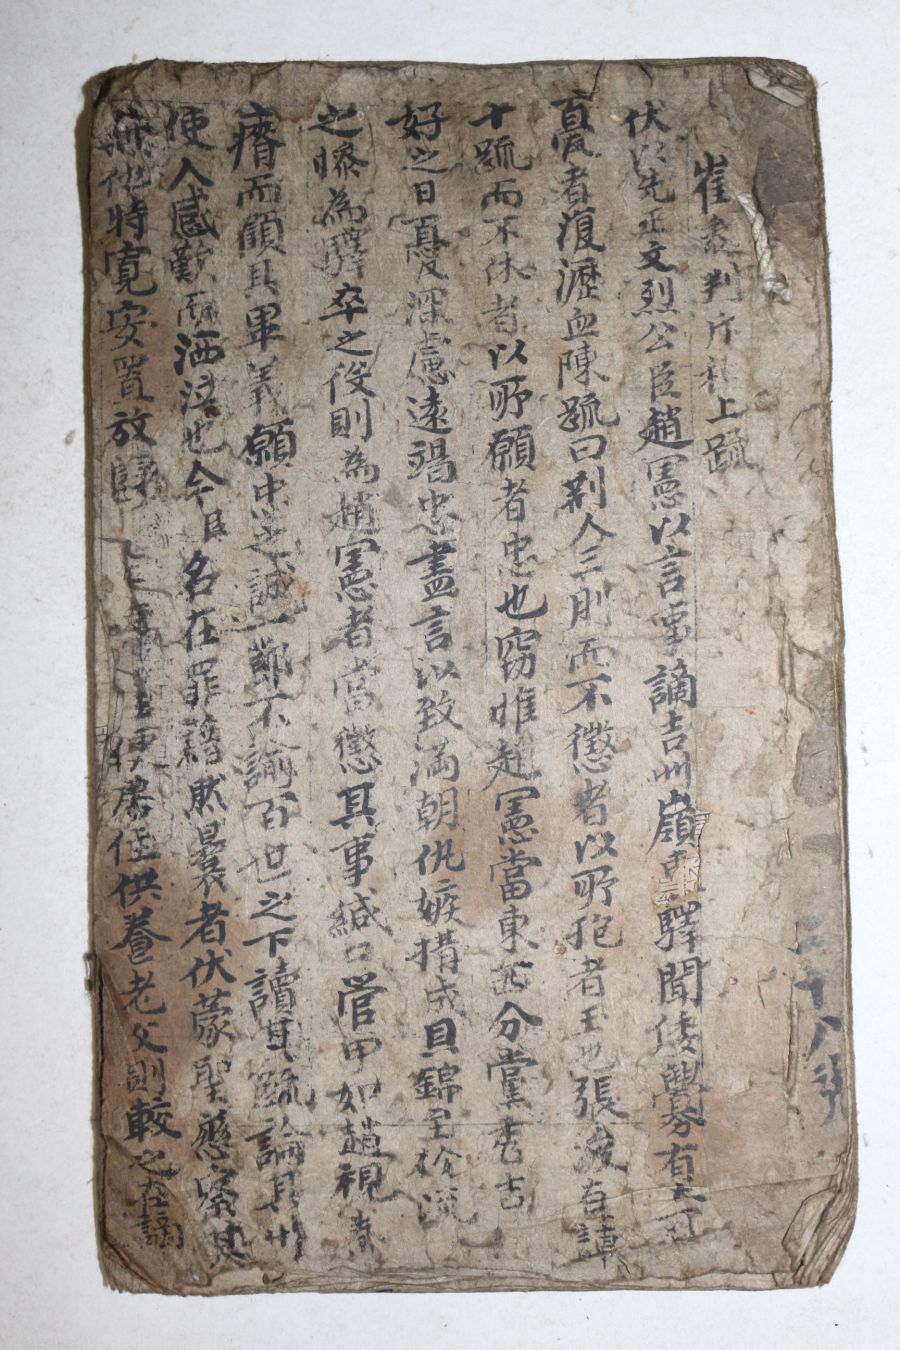 崔 判斥和上疏
伏以先正文烈公臣趙憲以言事謫吉州嶺 驛聞倭釁有大可
憂者復瀝血陳疏曰荊人三刖而不懲者以所抱者玉也張浚 謫
十疏而不休者以所願者忠也竊惟趙憲當東西分黨 言
好之日憂深慮遠竭忠盡言以致滿朝仇嫉搆成貝錦至於流
之 為驛卒之役則為趙憲者當懲其事緘口 如趙視
瘠而顧其畢義願忠之誠一節不渝百世之下讀其疏論其
使人感歎而洒泣也今臣名在罪籍然曩者伏蒙聖慈察其
無他特寬安置放歸 便居住供養老父則較之在謫
二十八